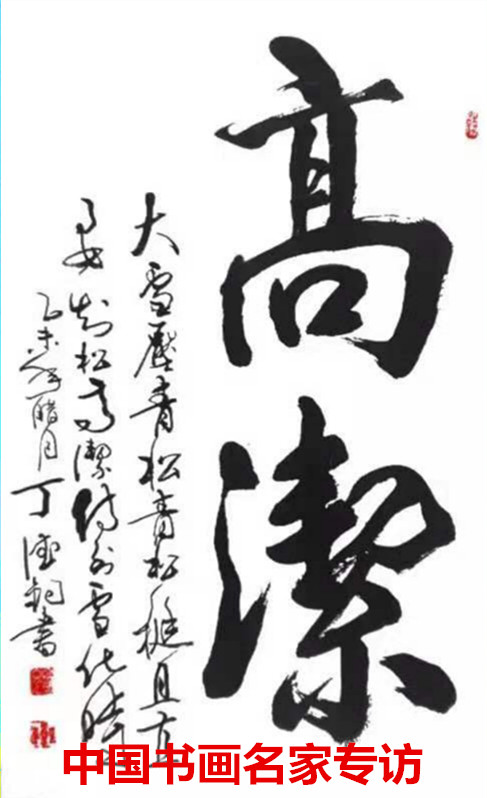 高潔
大雪壓青松青松挺且直
要知松高潔待到雪化時
乙未年腊月丁德錕書
中国书画名家专访